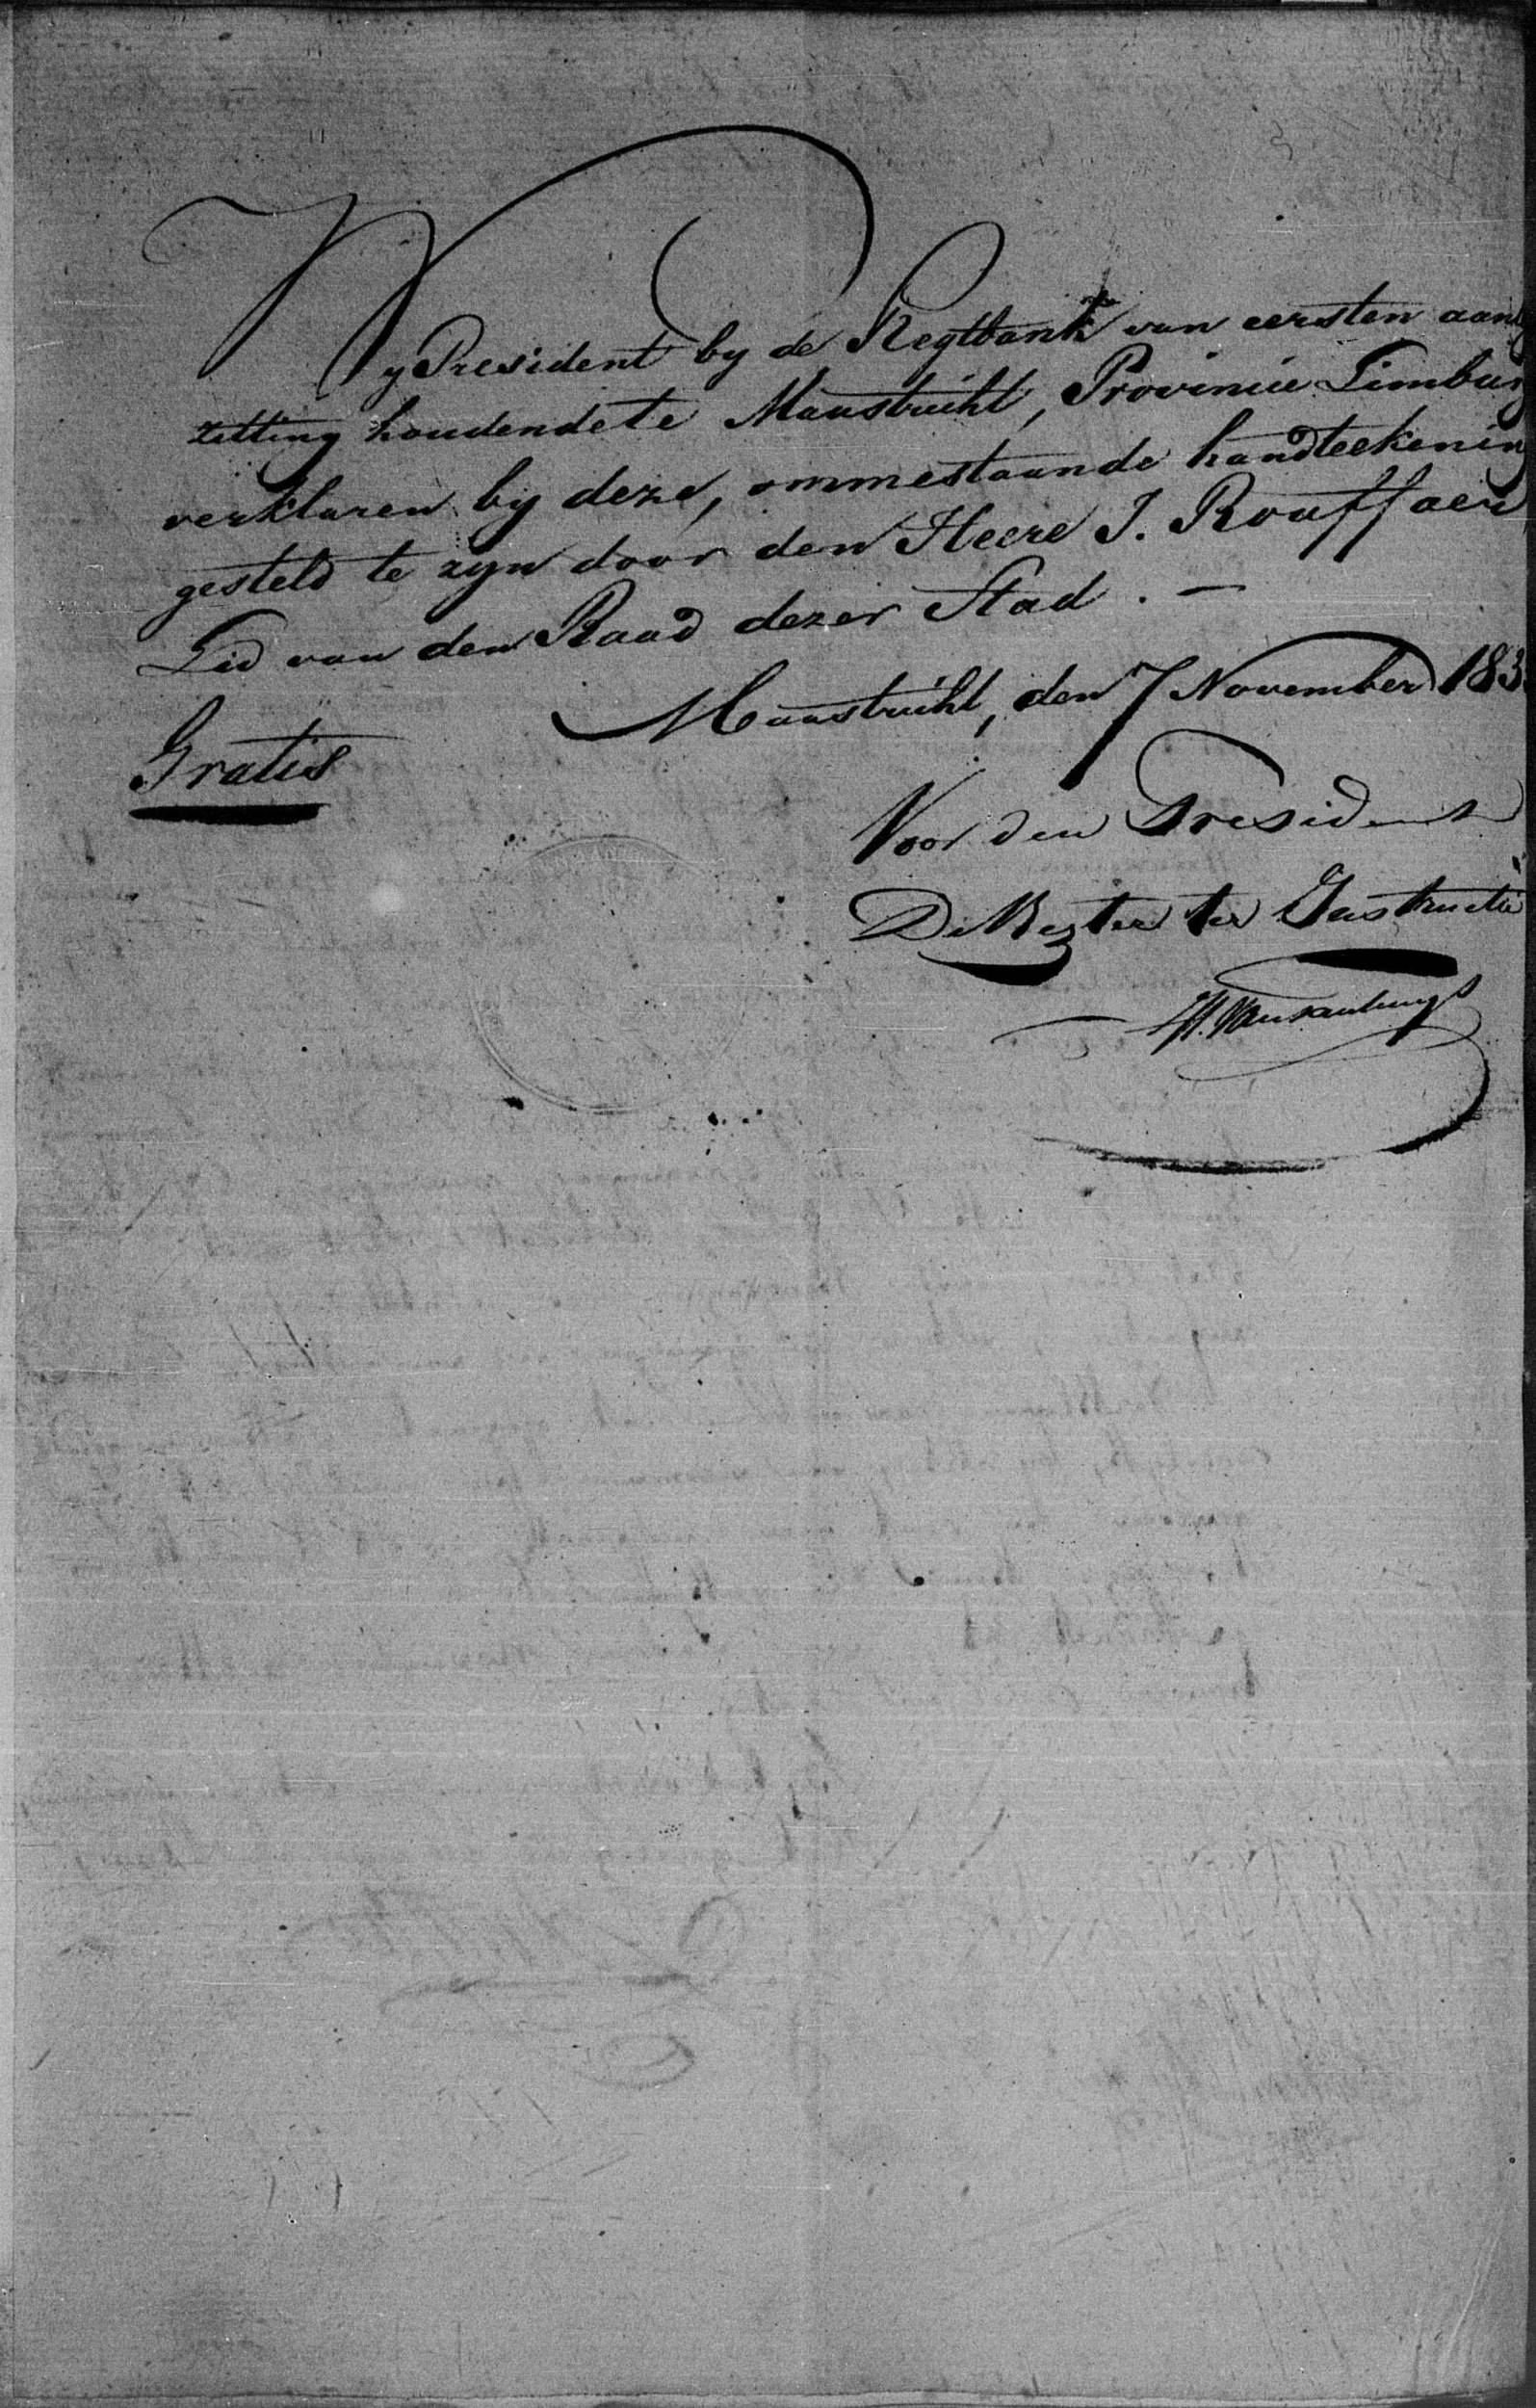 Wy President by de Regtbank van eersten aanl
zitting houdende te Maastricht, Provincie Limburg
verklaren by deze, ommestaande handteekening
gesteld te zyn door den Heere J. Rouffaer
Lid van den Raad dezer Stad. —
Maastricht, den 7 November 183
Gratis
Voor den President
De Regter ter Instructie